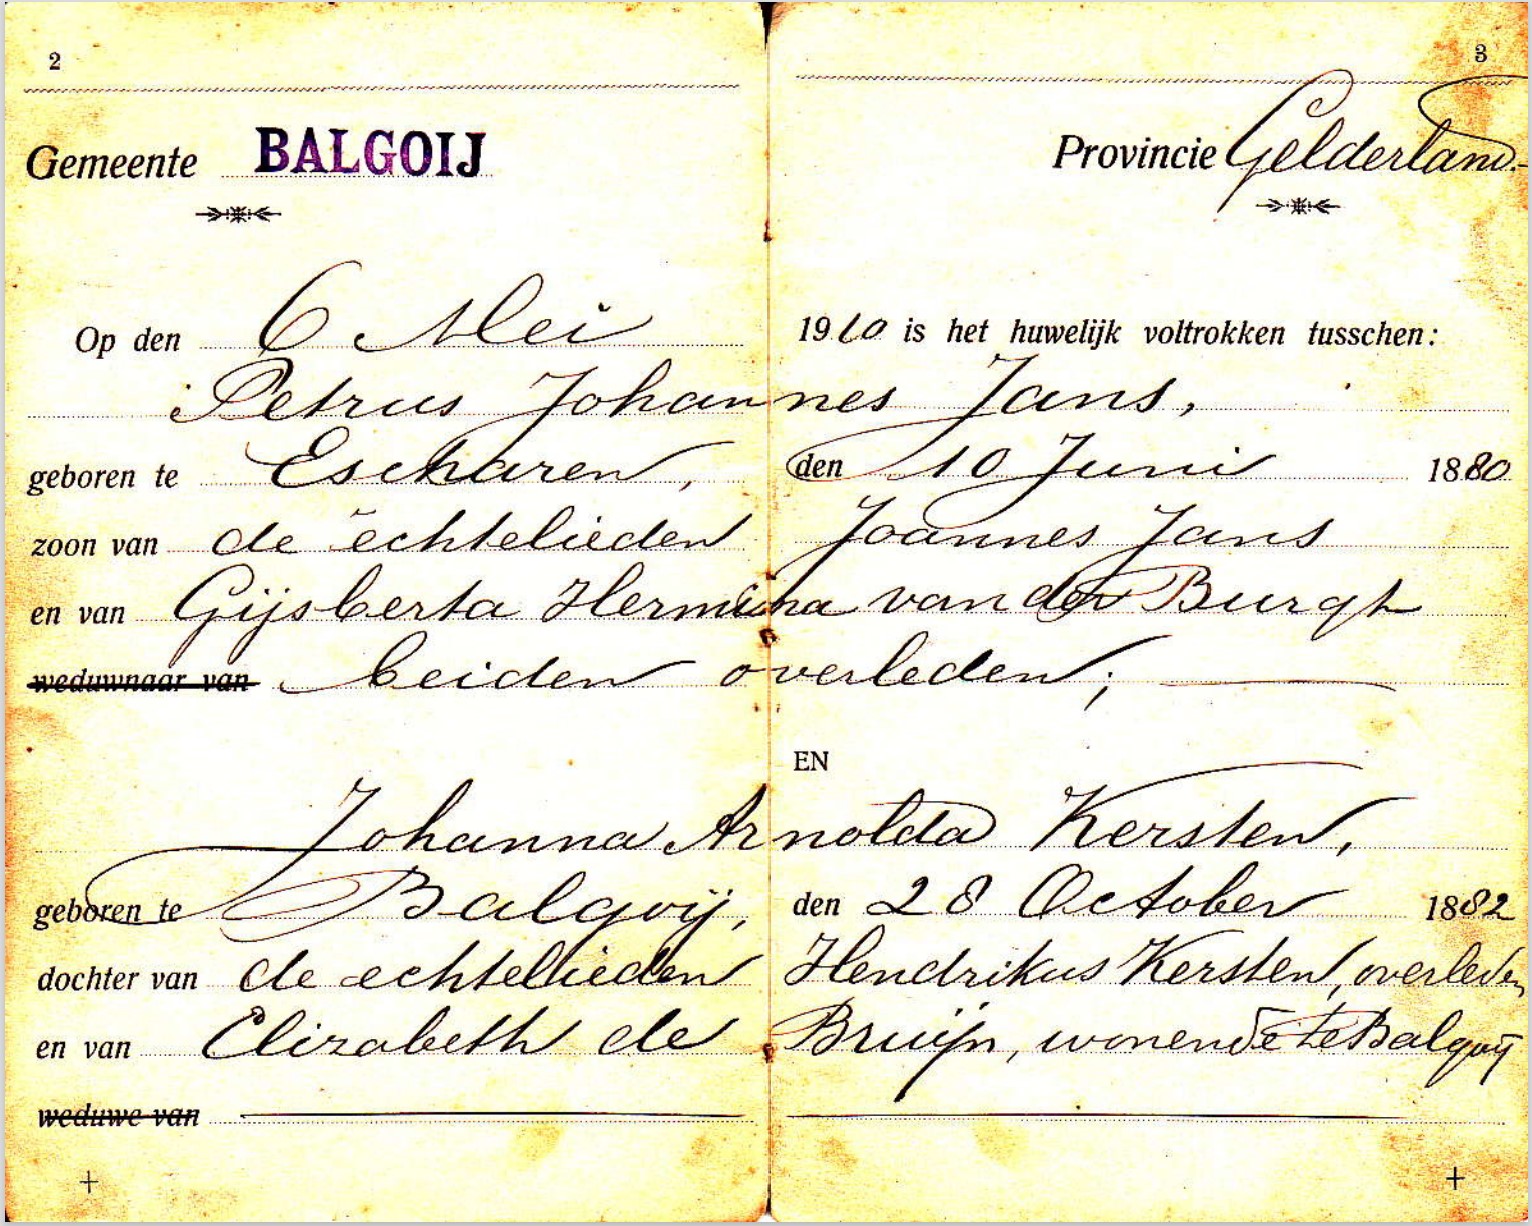 2 3
Gemeente BALGOIJ Provincie Gelderland.
Op den 6 Mei 1910 is het huwelijk voltrokken tusschen:
Petrus Johannes Jans,
geboren te Escharen, den 10 Juni 1880
zoon van de echtelieden Joannes Jans
en van Gijsberta Hermina van der Burgt
weduwnaar van beiden overleden;
EN
Johanna Arnolda Kersten,
geboren te Balgoij, den 28 October 1882
dochter van de echtelieden Hendrikus Kersten, overleden
en van Elizabeth de Bruijn, wonende te Balgoij
weduwe van